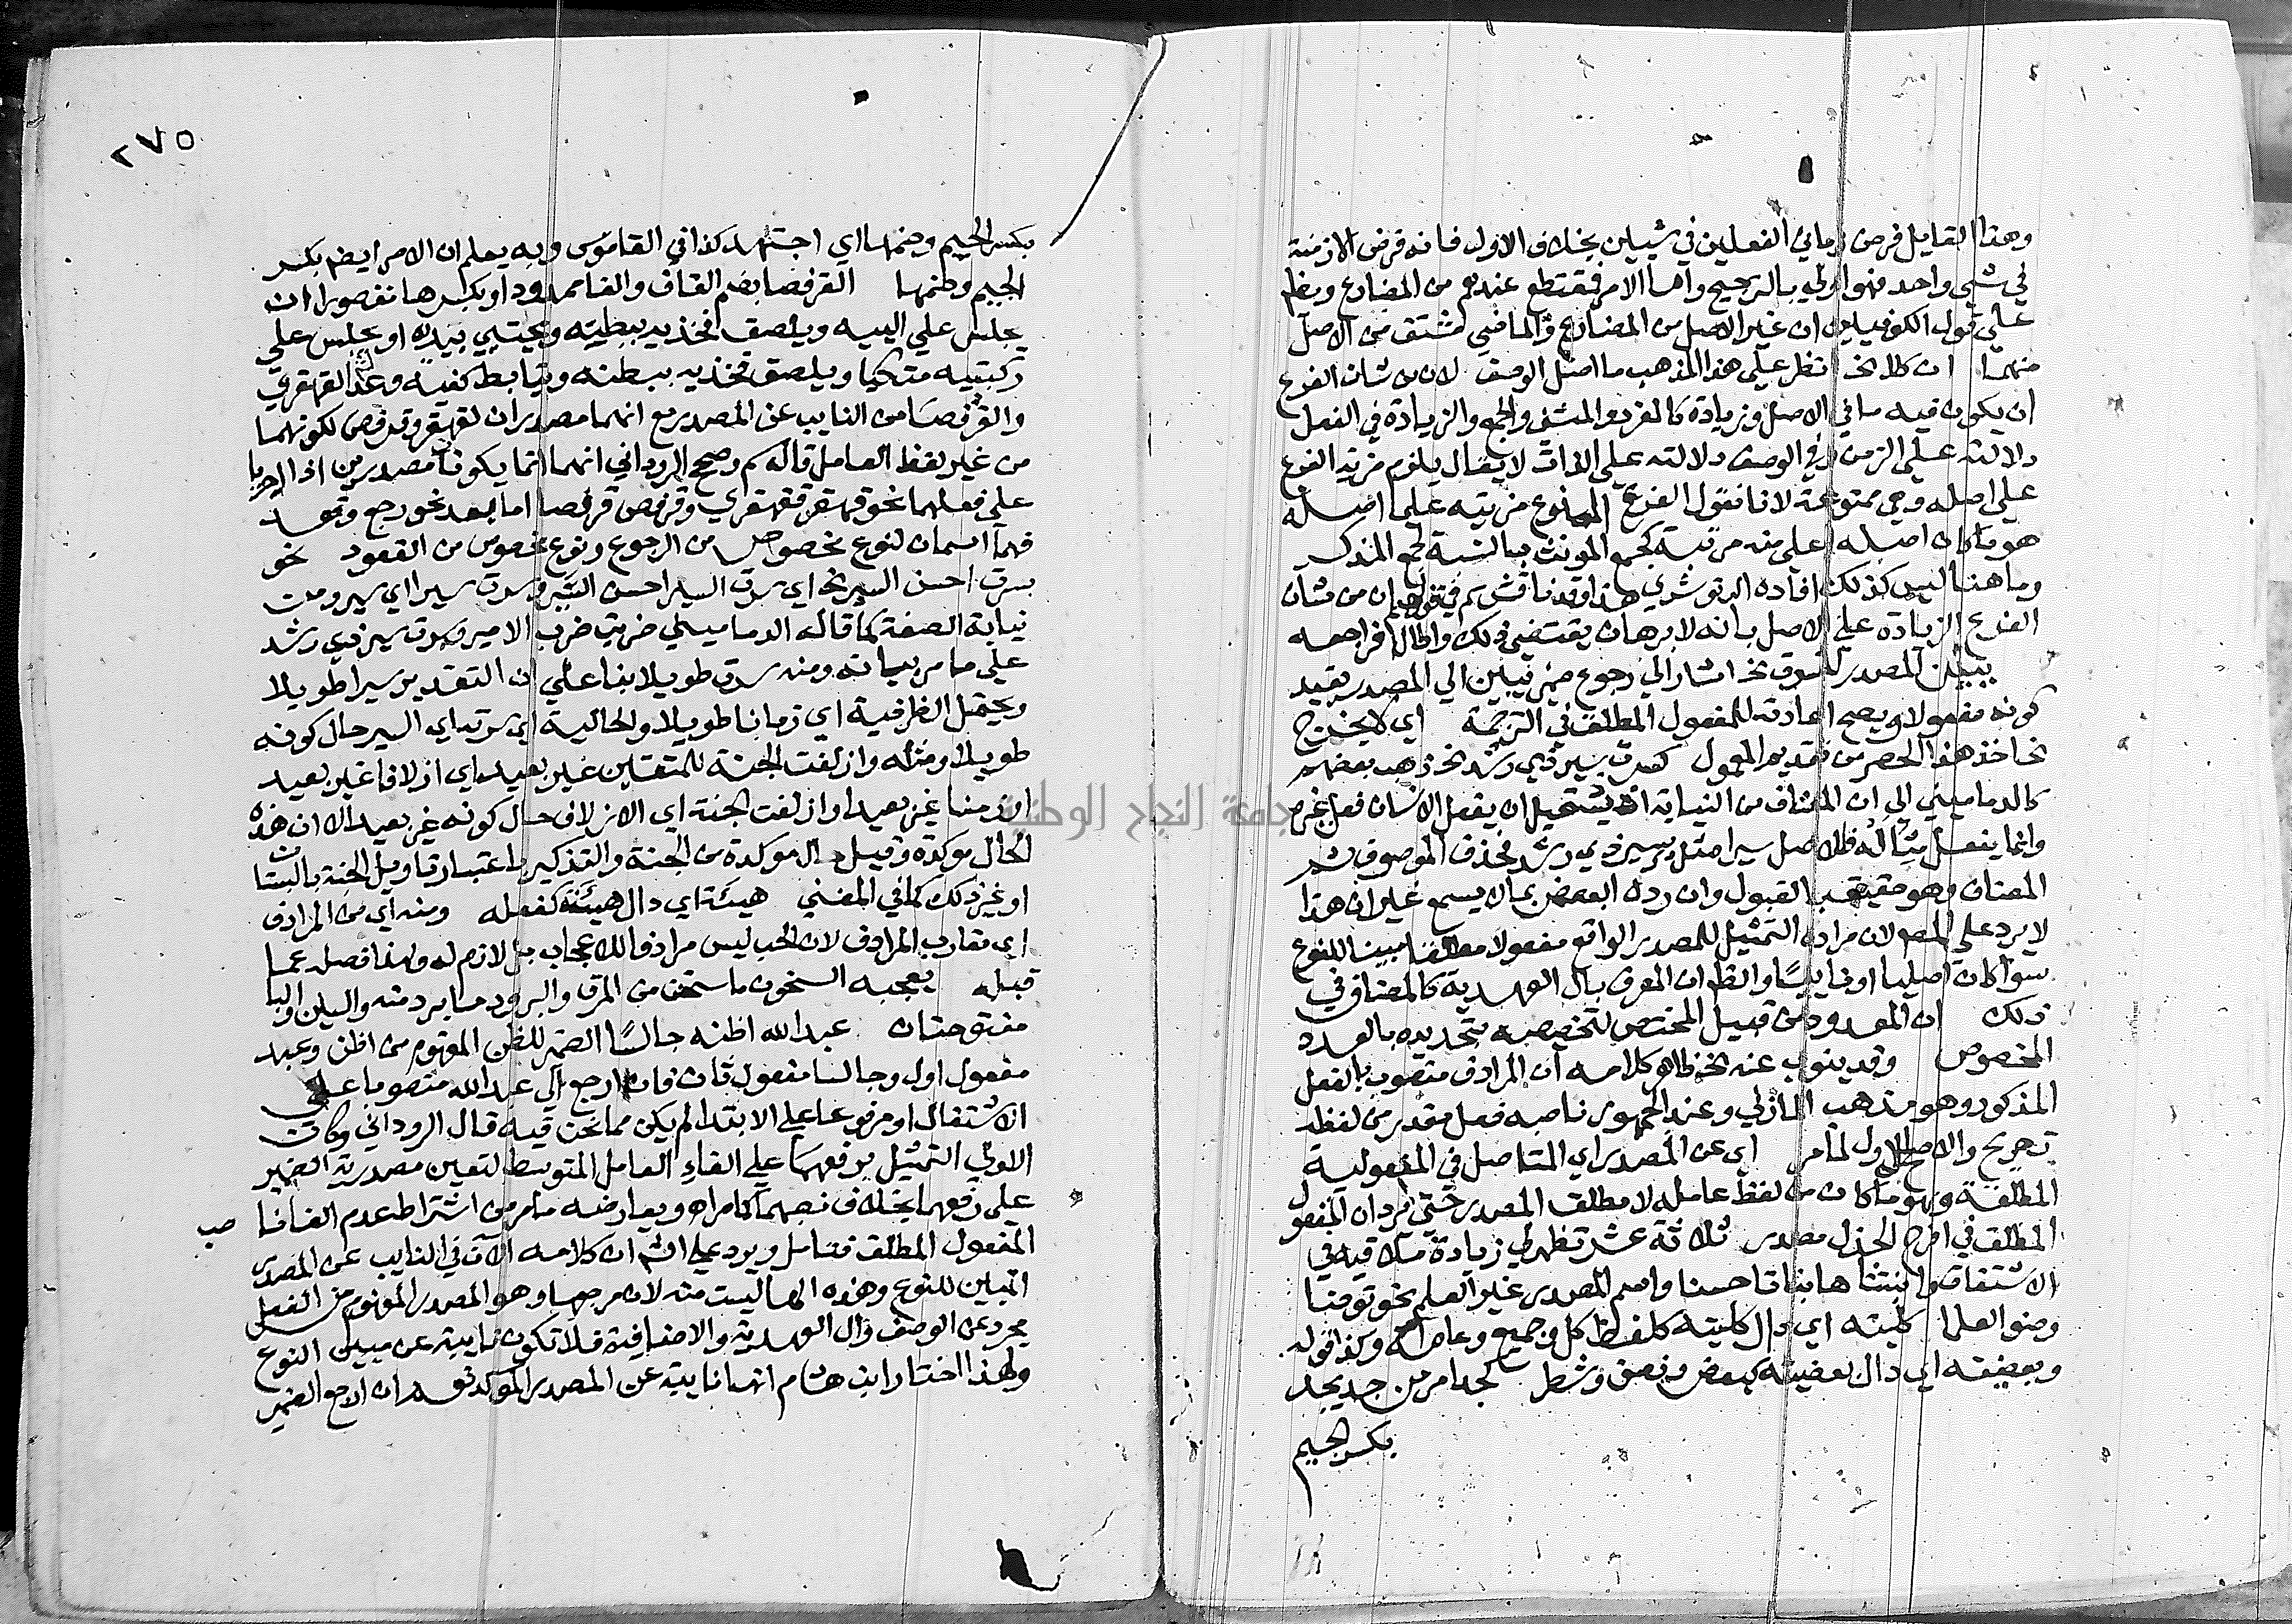 وهذا القايل فرض زماني الفعلين في شيئين بخلاف الاول فانه فرض الازمنة
في شي واحد فهو اولي بالترجيح واما الامر فمقتطع عندهم من المضارع ويظهر
علي قول الكوفيين ان غير الاصل من المضارع والماضي مشتق من الاصل
منهما ان كلا الخ انظر علي هذا المذهب ما اصل الوصف لان من شان الفرع
ان يكون فيه ما في الاصل وزيادة كالمفرد والمثني والجمع والزيادة في الفعل
دلالته علي الزمن وفي الوصف دلالته علي الذات لا يقال يلزم مزية الفرع
علي اصله وهي ممنوعة لانا نقول الفرع الممنوع مزيته علي اصله
هو ما كان اصله اعلي منه مرتبة كجمع المونث بالنسبة لجمع المذكر
وما هنا ليس كذلك افاده الدنوشري هذا وقد ناقش سم في قولهم ان من شان
الفرع الزيادة علي الاصل بانه لا برهان يقتضي ذلك واطال فراجعه
يبين المصدر المسوق الخ اشار الي رجوع ضمير يبين الي المصدر بقيد
كونه مفعولا ويصح اعادته للمفعول المطلق في الترجمة اي لا يخرج
الخ اخذ هذا الحصر من تقديم المعمول كسرت سير ذي رشد الخ ذهب بعضهم
كالدماميني الي ان المضاف من النيابة اذ يستحيل ان يفعل الانسان فعل غيره
وانما يفعل مثاله فالاصل سيرا مثل سير ذي رشد فحذف الموصوف ثم
المضاف وهو حقيق بالقبول وان رده البعض بما لا يسمع غير ان هذا
لا يرد علي المص لان مراده التمثيل للمصدر الواقع مفعولا مطلقا مبينا للنوع
سوا كان اصليا او نايبا والظ ان المعرف بال العهدية كالمضاف في
ذلك ان المعدود من قبيل المختص لتخصيصه بتحديده بالعدد
المخصوص وقد ينوب عنه الخ ظاهر كلامه ان المرادف منصوب بالفعل
المذكور وهو مذهب المازني وعند الجمهور ناصبه فعل مقدر من لفظه
تصريح والاصح الاول لما مر اي عن المصدر اي المتاصل في المفعولية
المطلقة وهو ما كان من لفظ عامله لا مطلق المصدر حتي يرد ان المفعول
المطلق في افرح الجذل مصدر ثلاثة عشر تظهر لي زيادة ملاقيه في
الاشتقاق وانبتها نباتا حسنا واسم المصدر غير العلم نحو توضا
وضو العلما كليته اي دال كليته كلفظ كل وجميع وعامة وكذا قوله
وبعضيته اي دال بعضيته كبعض ونصف وشطر كجد امر من جد يجد
بكسر الجيم
٢٧٥
بكسر الجيم وضمها اي اجتهد كذا في القاموس وبه يعلم ان الامر ايضا بكسر
الجيم وضمها القرفصا بضم القاف والفا ممدودا وبكسرها مقصورا ان
يجلس علي اليتيه ويلصق فخذيه ببطنه ويحتبي بيديه او يجلس علي
ركبتيه متكيا ويلصق فخذيه ببطنه ويتابط كفيه وعد القهقري
والقرفصا من النايب عن المصدر مع انهما مصدران لقهقر وقرفص لكونهما
من غير لفظ العامل قاله سم وصحح الروداني انهما انما يكونان مصدرين اذا اجريا
علي فعلهما نحو قهقر قهقري وقرفص قرفصا اما بعد نحو رجع وقعد
فهما اسمان لنوع مخصوص من الرجوع ونوع مخصوص من القعود نحو
سرت احسن السير الخ اي سرت السير احسن السير وسرت سيرا اي سير ومن
نيابة الصفة كما قاله الدماميني ضربت ضرب الامير وسرت سير ذي رشد
علي ما مر بيانه ومنه سرت طويلا بنا علي ان التقدير سيرا طويلا
ويحتمل الظرفية اي زمانا طويلا والحالية اي سرته اي السير حال كونه
طويلا ومثله وازلفت الجنة للمتقين غير بعيد اي ازلافا غير بعيد
او زمنا غير بعيد او ازلفت الجنة اي الازلاف حال كونه غير بعيد الا ان هذه
الحال موكدة وقيل حال موكدة من الجنة والتذكير باعتبار تاويل الجنة بالبستان
او غير ذلك كما في المغني هيئة اي دال هيئة كفعله ومنه اي من المرادف
اي مقارب المرادف لان الحب ليس مرادفا للاعجاب بل لازم له ولهذا فصله عما
قبله يعجبه السخون ما سخن من المرق والبرود ما يرد منه والسين والبا
مفتوحتان عبد الله اظنه جالسا الضمير للظن المفهوم من اظن وعبد
مفعول اول وجالسا مفعول ثان فان ارجع الي عبد الله منصوبا علي
الاشتغال او مرفوعا علي الابتدا لم يكن مما نحن فيه قال الروداني وكان
الاولي التمثيل برفعهما علي الغاء العامل المتوسط لتعين مصدرية الضمير
علي رفعهما بخلاف نصبهما كما مر اه ويعارضه ما مر من اشتراط عدم الغا ناصب
المفعول المطلق فتامل ويرد علي الش ان كلامه الان في النايب عن المصدر
المبين للنوع وهذه الها ليست منه لان مرجعها وهو المصدر المفهوم من الفعل
مجرد عن الوصف وال العهدية والاضافة فلا تكون نايبة عن مبين النوع
ولهذا اختار ابن هشام انها نايبة عن المصدر الموكد نعم ان ارجع الضمير